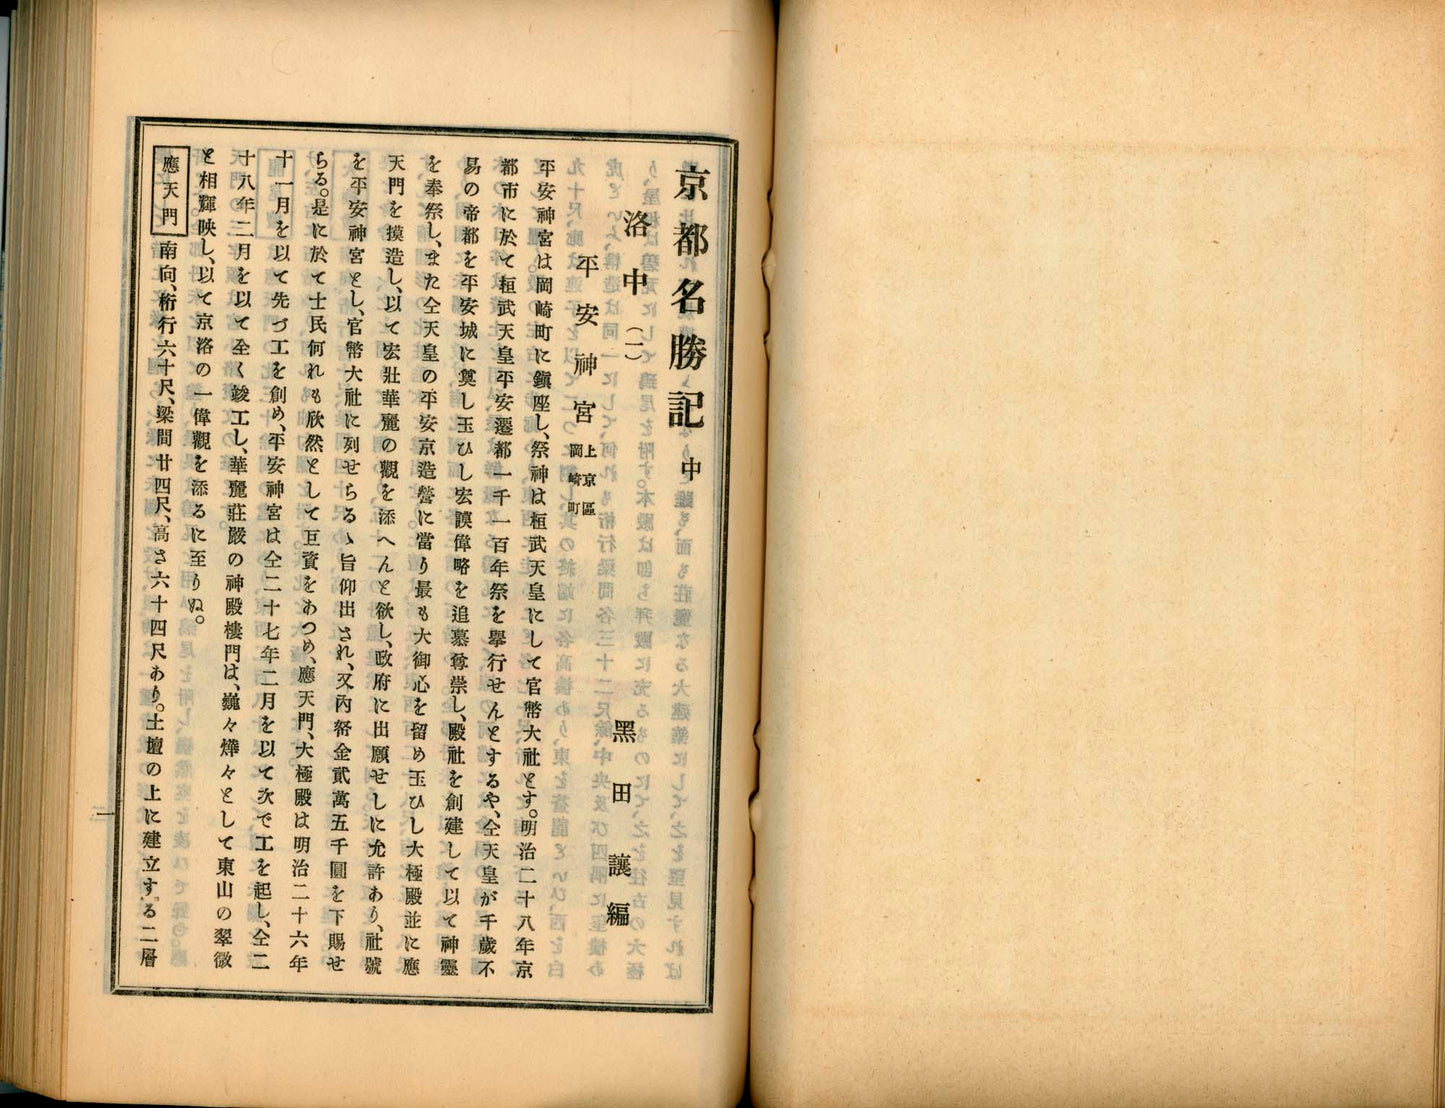 京都名勝記 中
黑田讓編
洛中(一)
平安神宮 上京區
岡崎町
平安神宮は岡崎町に鎭座し、祭神は桓武天皇にして官幣大社とす。明治二十八年京
都市に於て桓武天皇平安遷都一千一百年祭を擧行せんとするや、仝天皇が千歲不
易の帝都を平安城に奠し玉ひし宏謨偉略を追慕尊崇し、殿社を創建して以て神靈
を奉祭し、また仝天皇の平安京造營に當り最も大御心を留め玉ひし大極殿並に應
天門を摸造し、以て宏壯華麗の觀を添へんと欲し、政府に出願せしに允許あり、社號
を平安神宮とし、官幣大社に列せらるゝ旨仰出され、又內帑金貳萬五千圓を下賜せ
らる。是に於て士民何れも欣然として亙資をあつめ、應天門、大極殿は明治二十六年
十一月を以て先づ工を創め、平安神宮は仝二十七年二月を以て次で工を起し、仝二
十八年二月を以て全く竣工し、華麗莊嚴の神殿樓門は、巍々燁々として東山の翠微
と相輝映し、以て京洛の一偉觀を添るに至りぬ。
應天門 南向、桁行六十尺、梁間廿四尺、高さ六十四尺あり。土壇の上に建立す。る二層
一